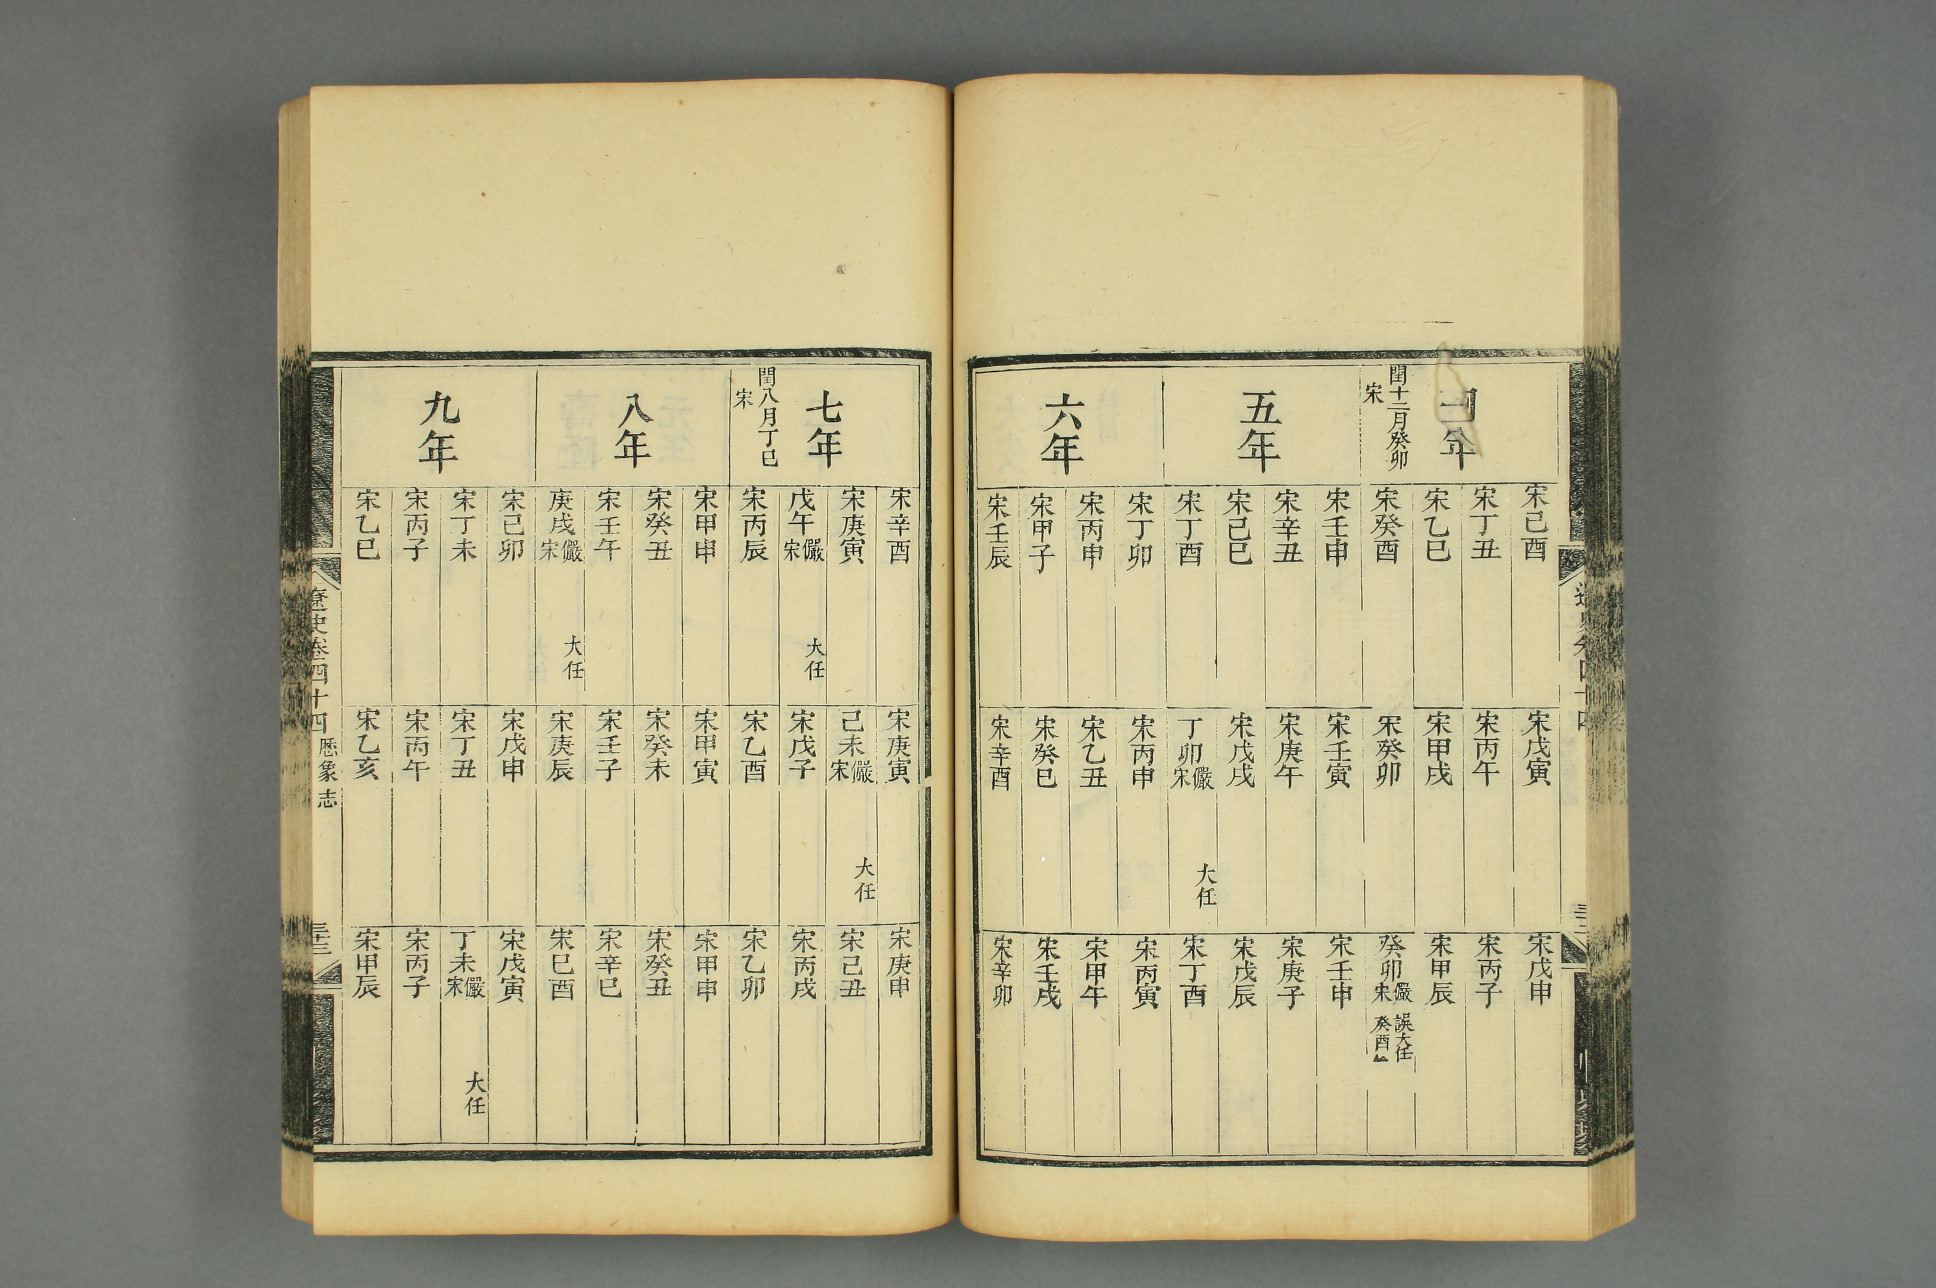 年
閏十二月癸卯
宋
宋己酉 宋戊寅 宋戊申
宋丁丑 宋丙午 宋丙子
宋乙巳 宋甲戌 宋甲辰
宋癸酉 宋癸卯 癸卯儼宋 誤大任癸酉
五年
宋壬申 宋壬寅 宋壬申
宋辛丑 宋庚午 宋庚子
宋己巳 宋戊戌 宋戊辰
宋丁酉 丁卯儼宋 大任 宋丁酉
六年
宋丁卯 宋丙申 宋丙寅
宋丙申 宋乙丑 宋甲午
宋甲子 宋癸巳 宋壬戌
宋壬辰 宋辛酉 宋辛卯
七年
閏八月丁巳
宋
宋辛酉 宋庚寅 宋庚申
宋庚寅 己未儼宋 大任 宋己丑
戊午儼宋 大任 宋戊子 宋丙戌
宋丙辰 宋乙酉 宋乙卯
八年
宋甲申 宋甲寅 宋甲申
宋癸丑 宋癸未 宋癸丑
宋壬午 宋壬子 宋辛巳
庚戌儼宋 大任 宋庚辰 宋巳酉
九年
宋己卯 宋戊申 宋戊寅
宋丁未 宋丁丑 丁未儼宋 大任
宋丙子 宋丙午 宋丙子
宋乙巳 宋乙亥 宋甲辰
遼史卷四十四 厯象志 三十三